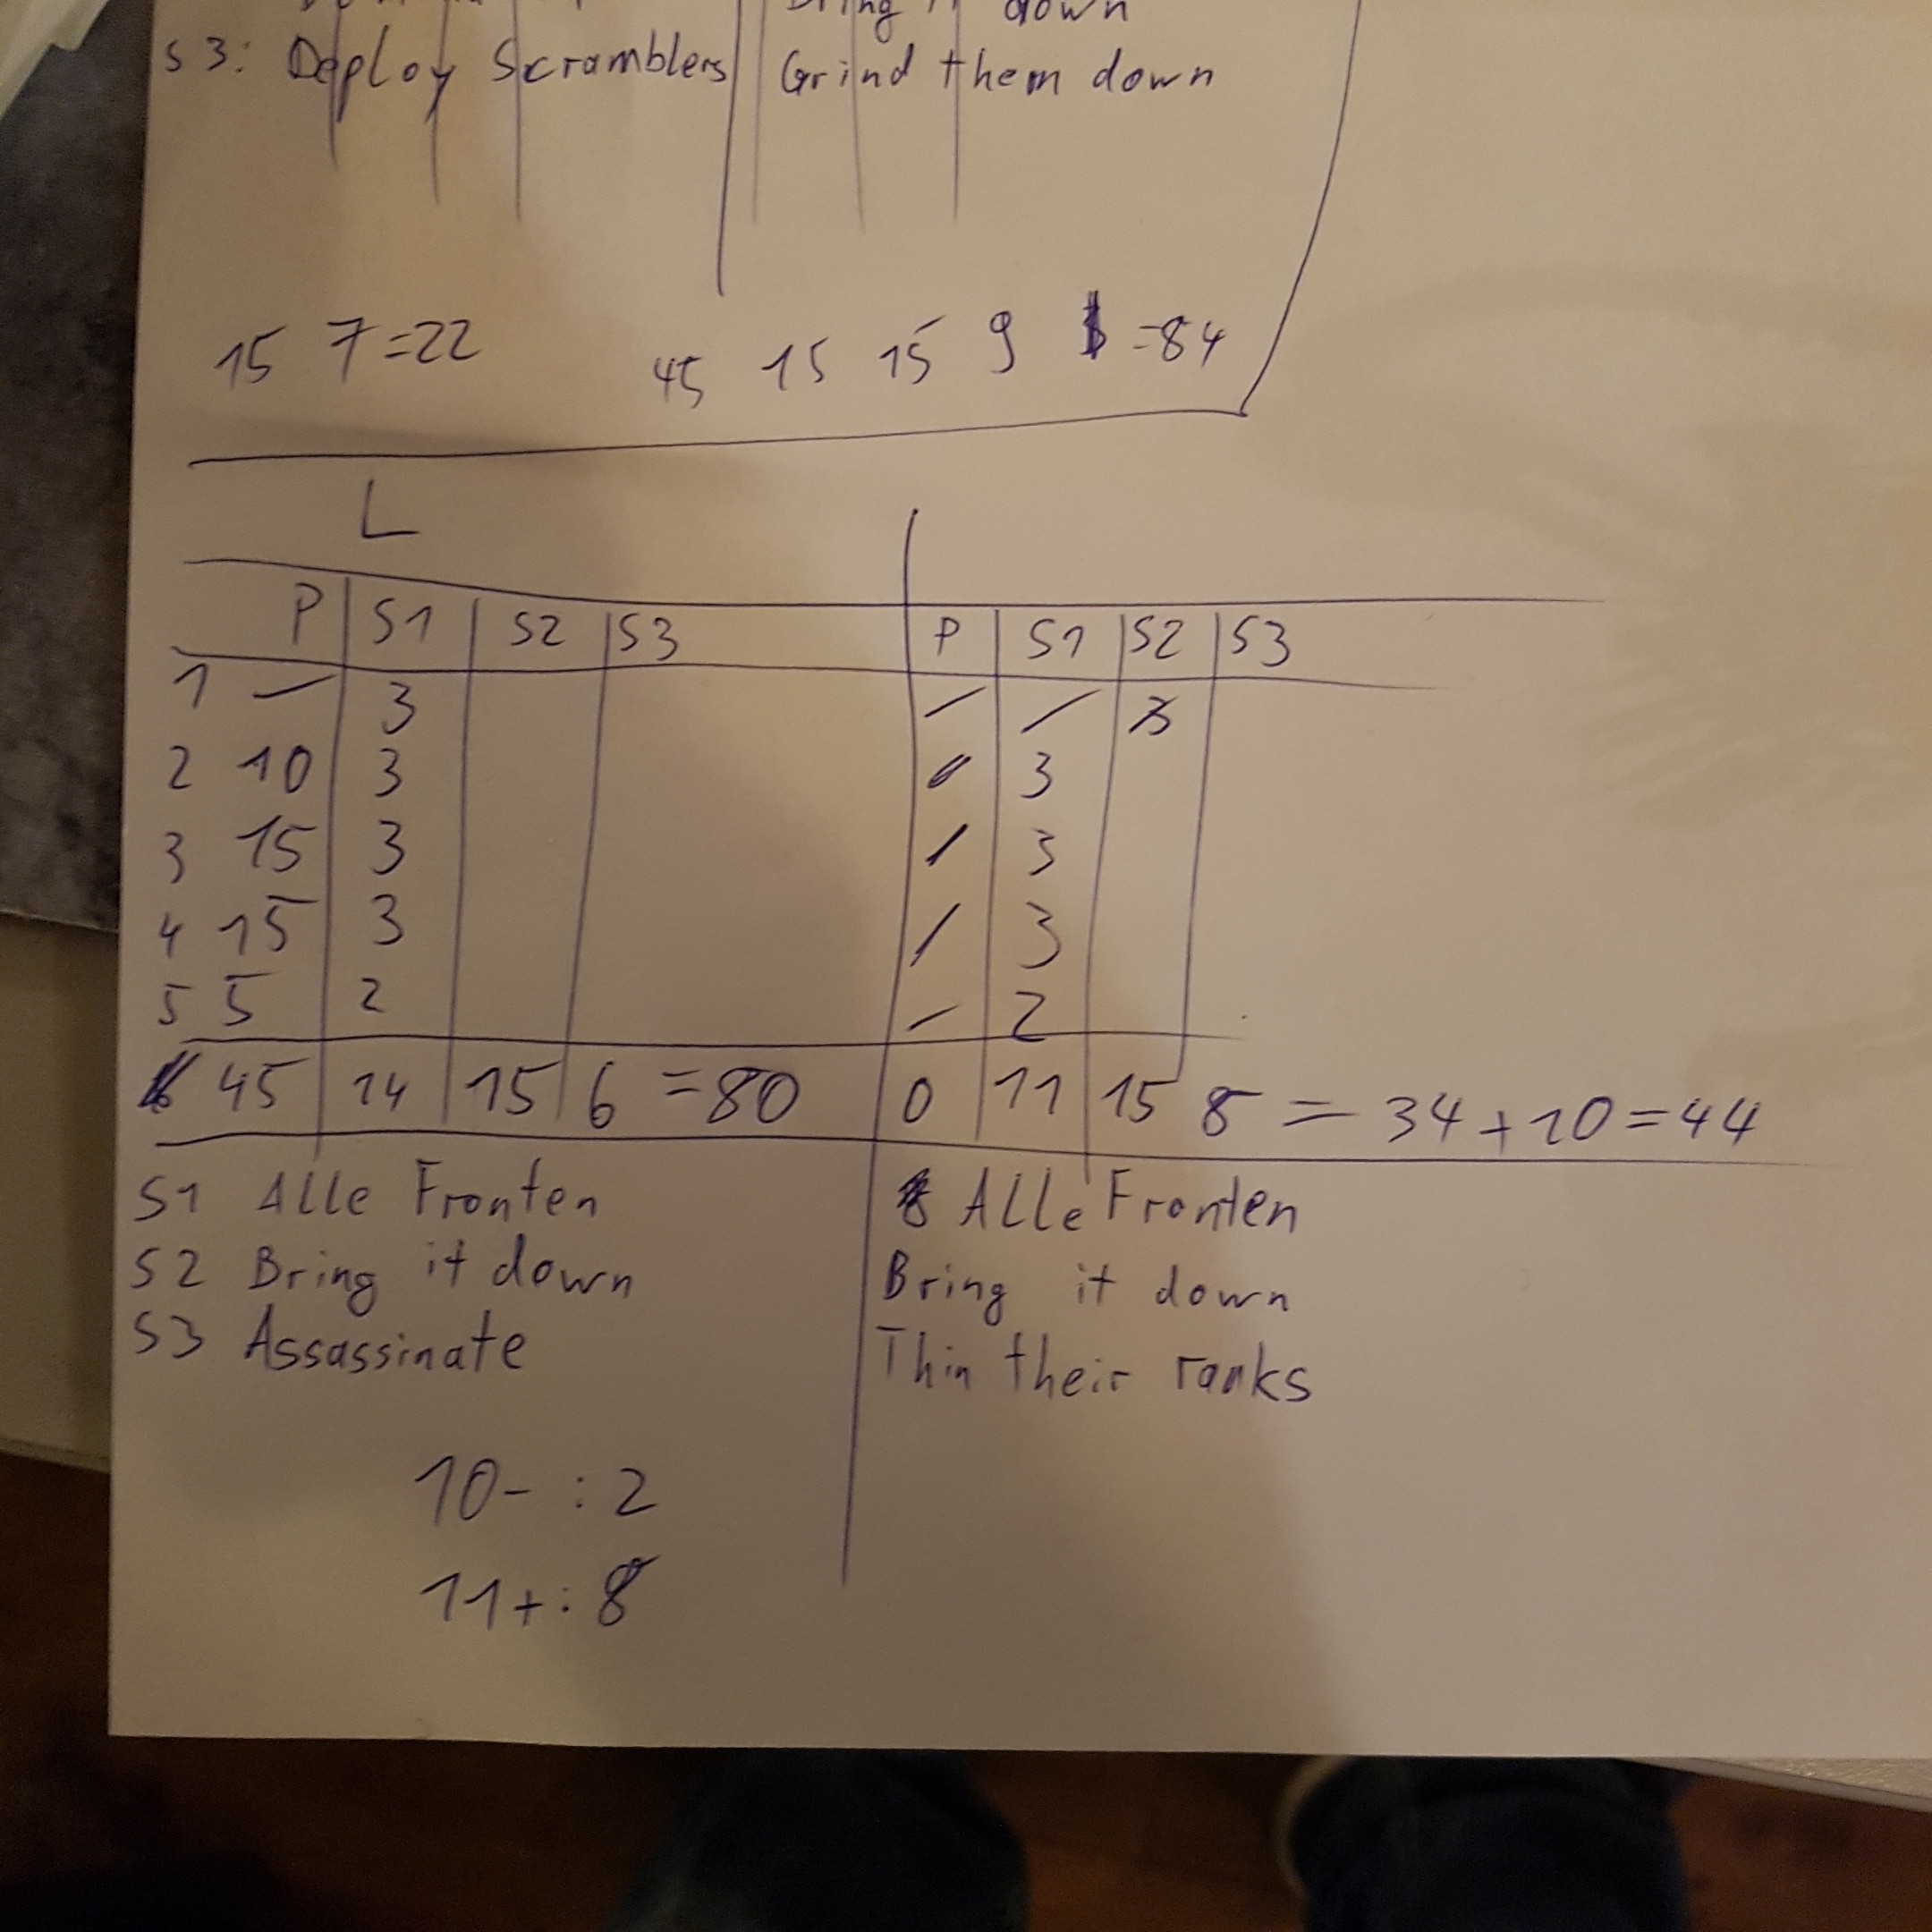 down
S3: Deploy Scramblers Grind them down
15 7=22 45 15 15 9 =84
L
P S1 S2 S3 P S1 S2 S3
1 – 3 / / 3
2 10 3 / 3
3 15 3 / 3
4 15 3 / 3
5 5 2 – 2
45 14 15 6 =80 0 11 15 8 = 34+10=44
S1 Alle Fronten Alle Fronten
S2 Bring it down Bring it down
S3 Assassinate Thin their ranks
10- : 2
11+: 8